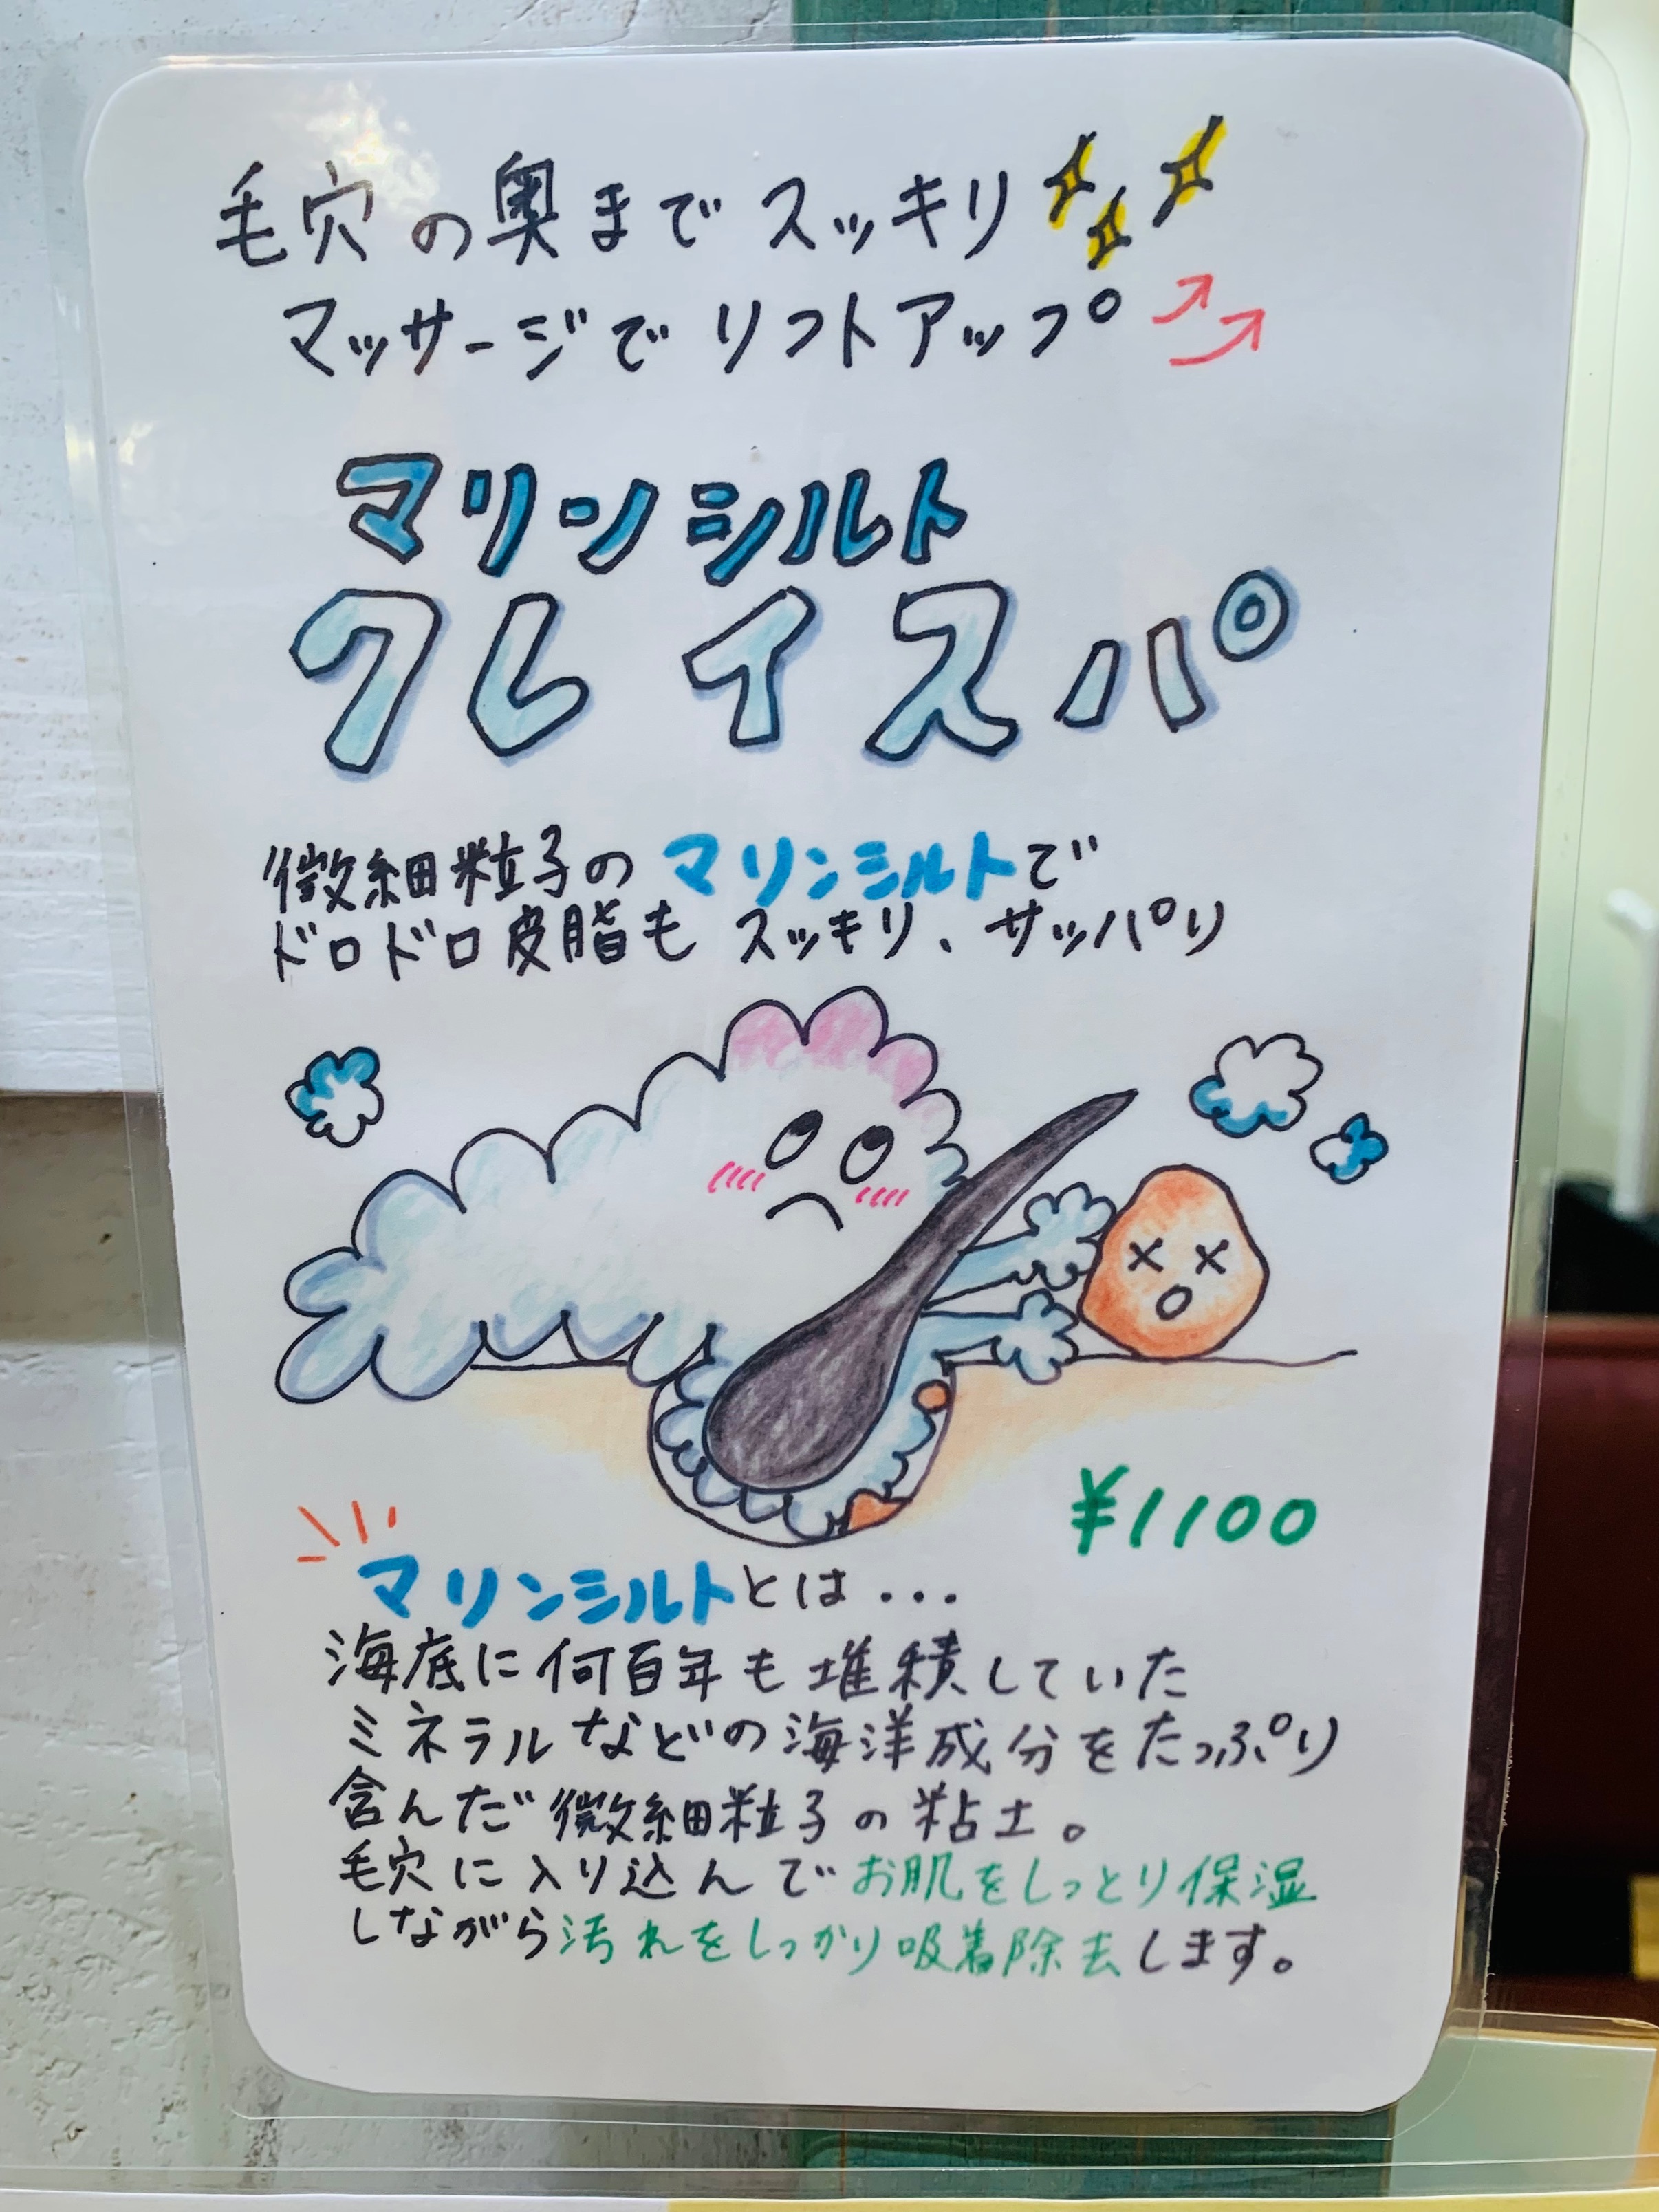 毛穴の奥までスッキリ
マッサージでリフトアップ
マリンシルト
クレイスパ
微細粒子のマリンシルトで
ドロドロ皮脂もスッキリ、サッパリ
¥1100
マリンシルトとは...
海底に何百年も堆積していた
ミネラルなどの海洋成分をたっぷり
含んだ微細粒子の粘土。
毛穴に入り込んでお肌をしっとり保湿
しながら汚れをしっかり吸着除去します。